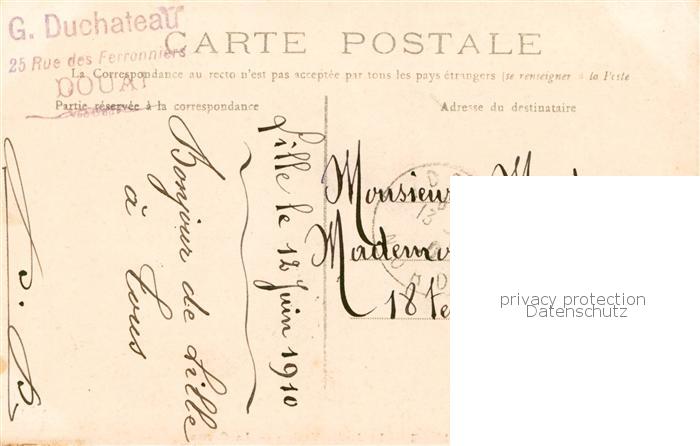 G. Duchateau
25 Rue des Ferronniers
DOUAI
CARTE POSTALE
La Correspondance au recto n'est pas acceptée par tous les pays étrangers (se renseigner à la Poste
Partie réservée à la correspondance
Adresse du destinataire
Lille le 12 Juin 1910
Bonjour de Lille
à tous
Monsieur
Mademoi
18
privacy protection
Datenschutz